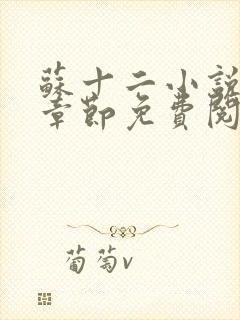 蘇十二小說
章節免費閱
葡萄v